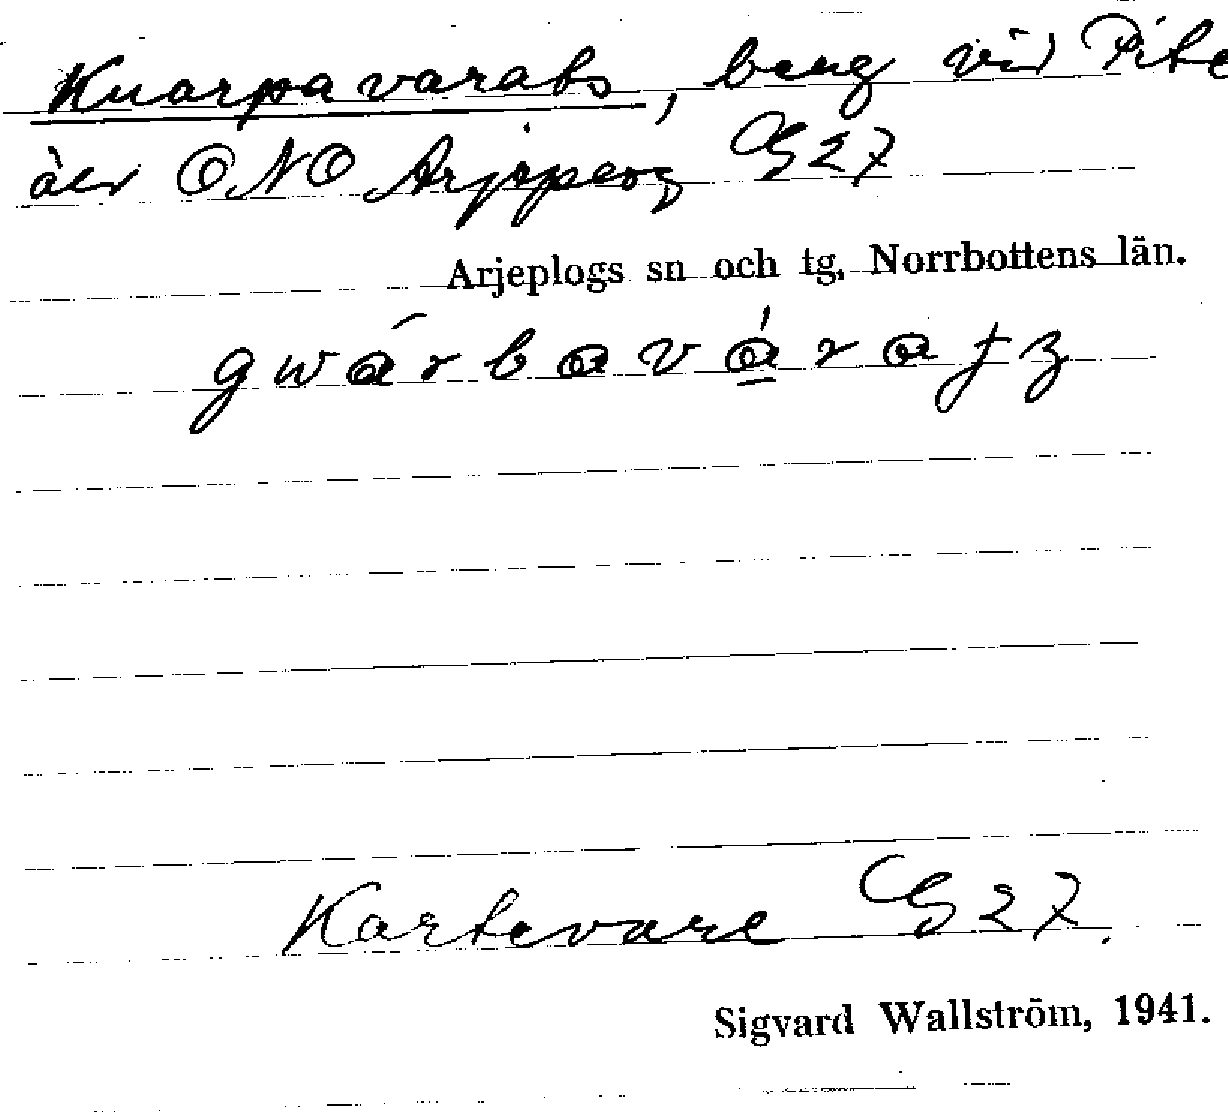 Kuarpavarats, berg vid Pite
älv ONO Arjeplog G27
Arjeplogs sn och tg, Norrbottens län.
gwárbaváratz
Kartevare G27.
Sigvard Wallström, 1941.